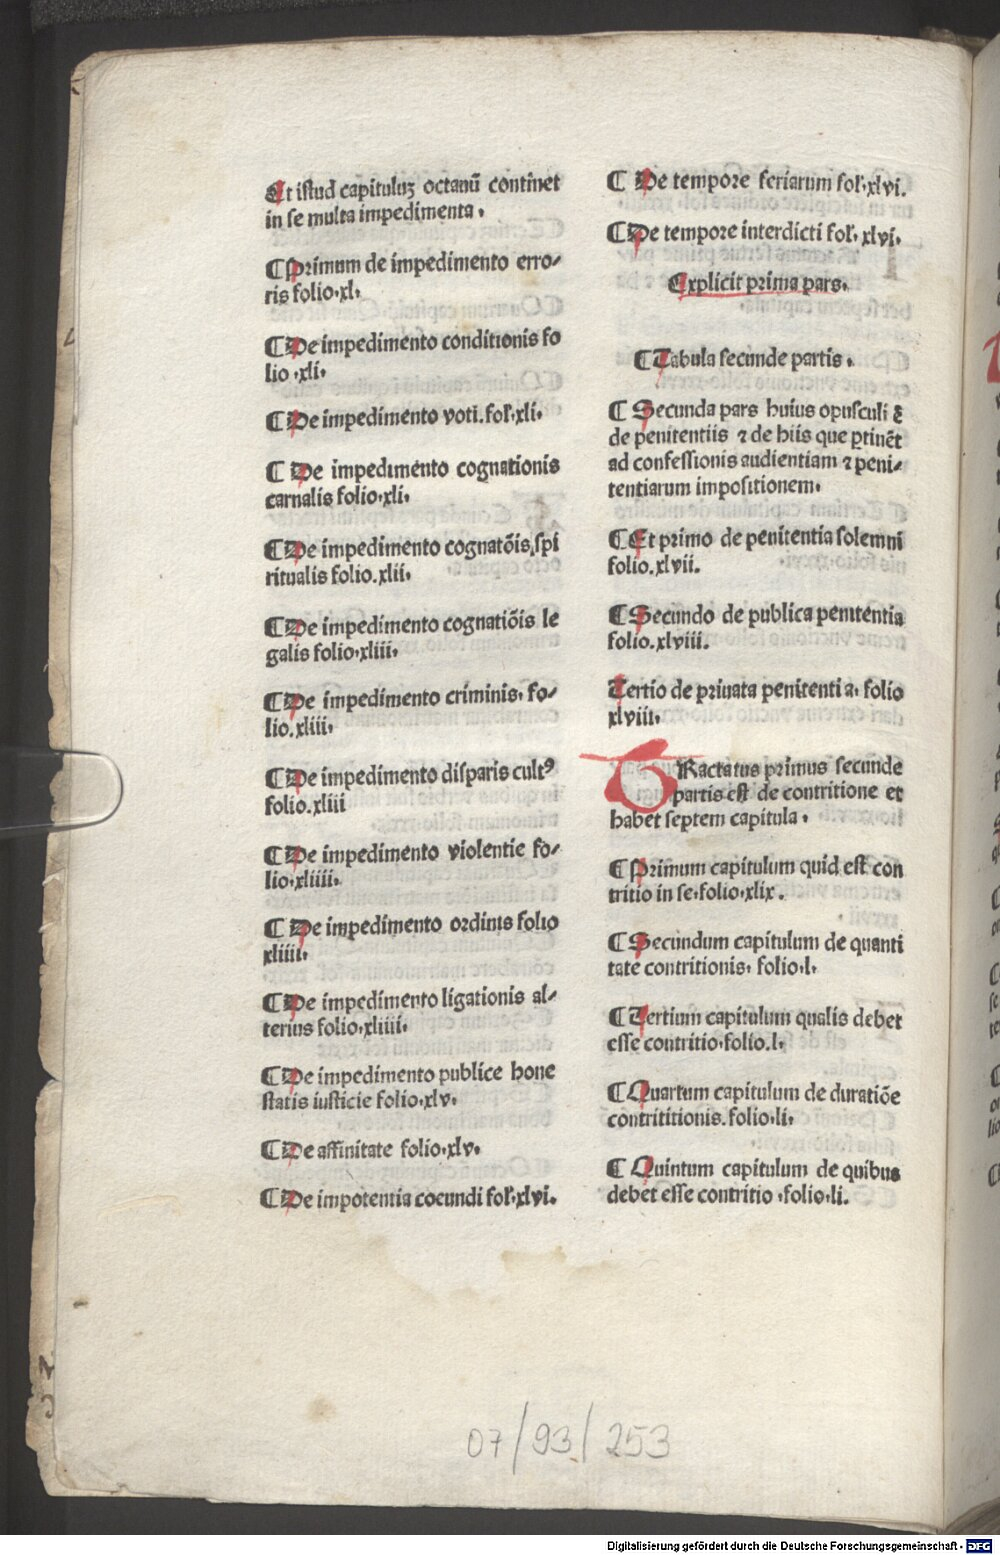 Et istud capituluʒ octauū continet
in se multa impedimenta.
¶ Primum de impedimento erro-
ris folio.xl.
¶ De impedimento conditionis fo
lio .xli.
¶ De impedimento voti. fol'.xli.
¶ De impedimento cognationis
carnalis folio.xli.
¶ De impedimento cognatōis spi
ritualis folio.xlii.
¶ De impedimento cognatiōis le
galis folio.xliii.
¶ De impedimento criminis. fo-
lio.xliii.
¶ De impedimento disparis cultꝰ
folio.xliii
¶ De impedimento violentie fo-
lio.xliiii.
¶ De impedimento ordinis folio
xliiii.
¶ De impedimento ligationis al-
terius folio.xliiii.
¶ De impedimento publice hone
statis iusticie folio.xlv.
¶ De affinitate folio.xlv.
¶ De impotentia coeundi fol'.xlvi.
¶ De tempore feriarum fol'.xlvi.
¶ De tempore interdicti fol'. xlvi.
Explicit prima pars.
¶ Tabula secunde partis .
¶ Secunda pars huius opusculi ē
de penitentiis ⁊ de hiis que ꝑtinēt
ad confessionis audientiam ⁊ peni-
tentiarum impositionem.
¶ Et primo de penitentia solemni
folio.xlvii.
¶ Secundo de publica penitentia
folio.xlviii.
Tertio de priuata penitenti a. folio
xlviii.
TRactatus primus secunde
partis est de contritione et
habet septem capitula .
¶ Primum capitulum quid est con
tritio in se.folio.xlix.
¶ Secundum capitulum de quanti
tate contritionis. folio.l.
¶ Tertium capitulum qualis debet
esse contritio.folio.l.
¶ Quartum capitulum de duratiōe
contrititionis.folio.li.
¶ Quintum capitulum de quibus
debet esse contritio .folio.li.
07/93/253
Digitalisierung gefördert durch die Deutsche Forschungsgemeinschaft - DFG